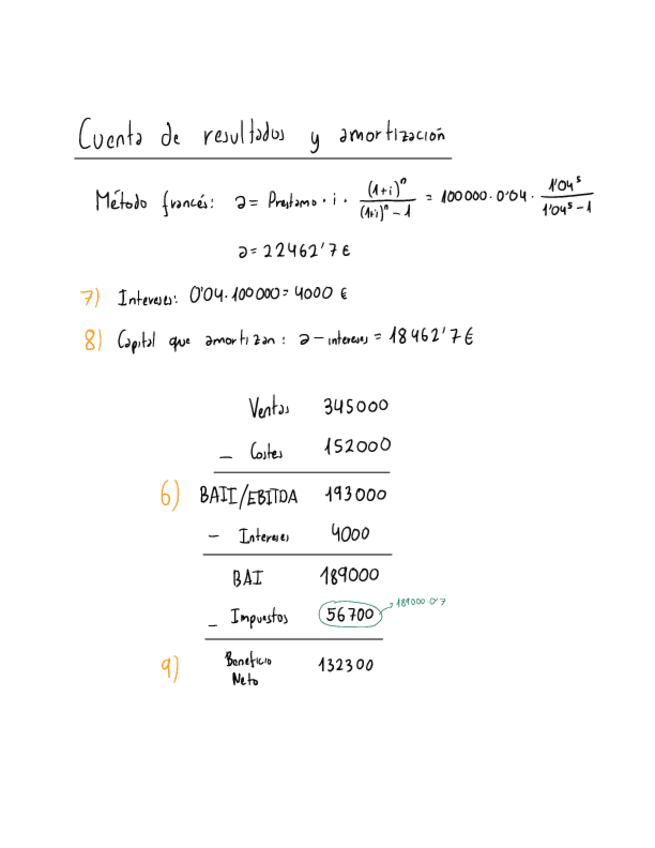 Cuenta de resultados y amortización
Método francés: a = Prestamo · i · (1+i)^n / (1+i)^n - 1 = 100000 · 0'04 · 1'04^5 / 1'04^5 - 1
a = 22462'7 €
7) Intereses: 0'04 · 100000 = 4000 €
8) Capital que amortizan: a - intereses = 18462'7 €
Ventas 345000
- Costes 152000
6) BAII/EBITDA 193000
- Intereses 4000
BAI 189000
- Impuestos 56700 189000·0'7
9) Beneficio Neto 132300